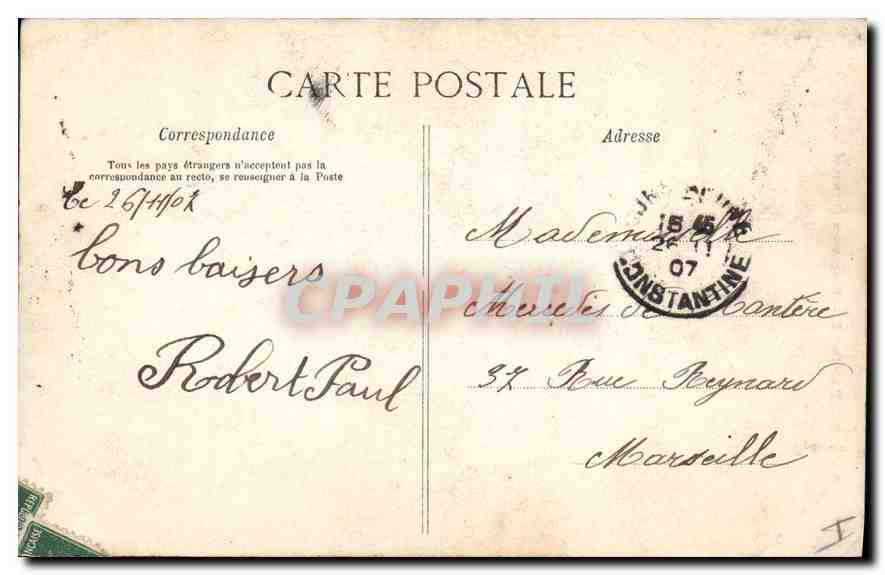 CARTE POSTALE
Correspondance
Tous les pays étrangers n'acceptent pas la
correspondance au recto, se renseigner à la Poste
Le 26/11/07
bons baisers
Robert Paul
Adresse
Mademoiselle
Mercédès de Mantère
37 Rue Reynard
Marseille
15 45
26 11
07
CONSTANTINE
CPAPHIL
I